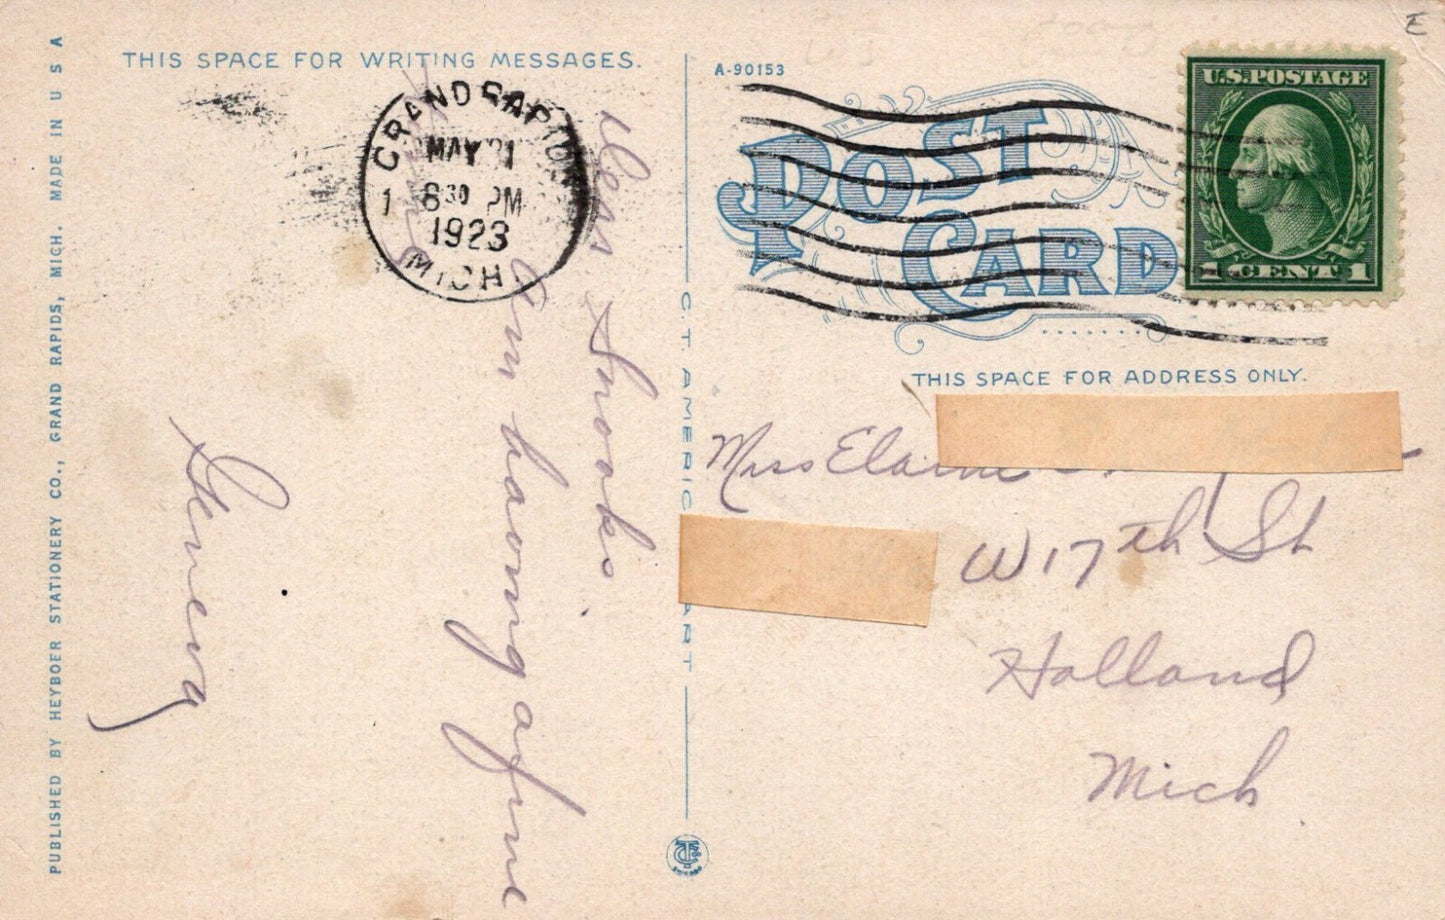 THIS SPACE FOR WRITING MESSAGES.
GRAND RAPIDS
MAY 21
1 630 PM
1923
MICH
Dear Snooks
Am having a fine
time
Geneva
PUBLISHED BY HEYBOER STATIONERY CO., GRAND RAPIDS, MICH. MADE IN U S A
C. T. AMERICAN ART
CHICAGO
A-90153
POST CARD
U.S. POSTAGE
1 CENT 1
E
THIS SPACE FOR ADDRESS ONLY.
Miss Elaine
W 17th St
Holland
Mich